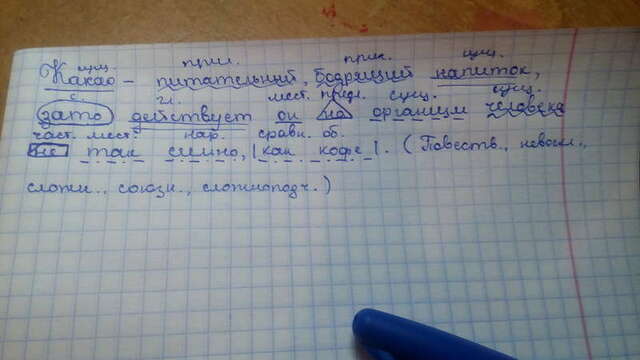 сущ. прил. прил. сущ.
Какао – питательный, бодрящий напиток,
с. гл. мест. предл. сущ. сущ.
зато действует он на организм человека
част. мест. нар. сравн. об.
не так сильно, |как кофе|. (Повеств., невоскл.,
сложн., союзн., сложноподч.)